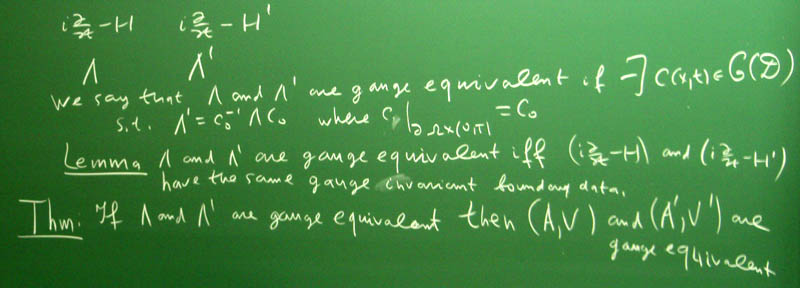 i∂/∂t - H    i∂/∂t - H'
Λ    Λ'
We say that Λ and Λ' are gauge equivalent if ∃ c(x,t) ∈ G(D)
s.t. Λ' = c₀⁻¹ Λ c₀ where c|∂Ω×(0,T) = c₀
Lemma Λ and Λ' are gauge equivalent iff (i∂/∂t - H) and (i∂/∂t - H')
have the same gauge invariant boundary data.
Thm. If Λ and Λ' are gauge equivalent then (A,V) and (A',V') are
gauge equivalent